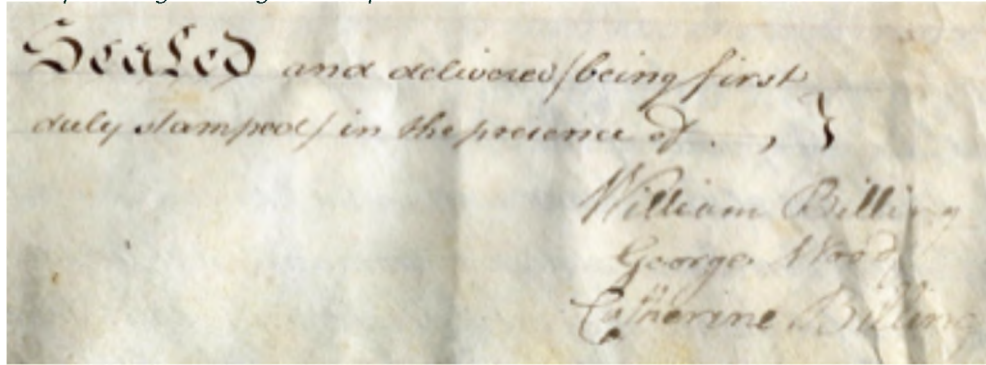 Sealed and delivered (being first
duly stamped) in the presence of . , }
William Billing
George Wood
Catherine Billing